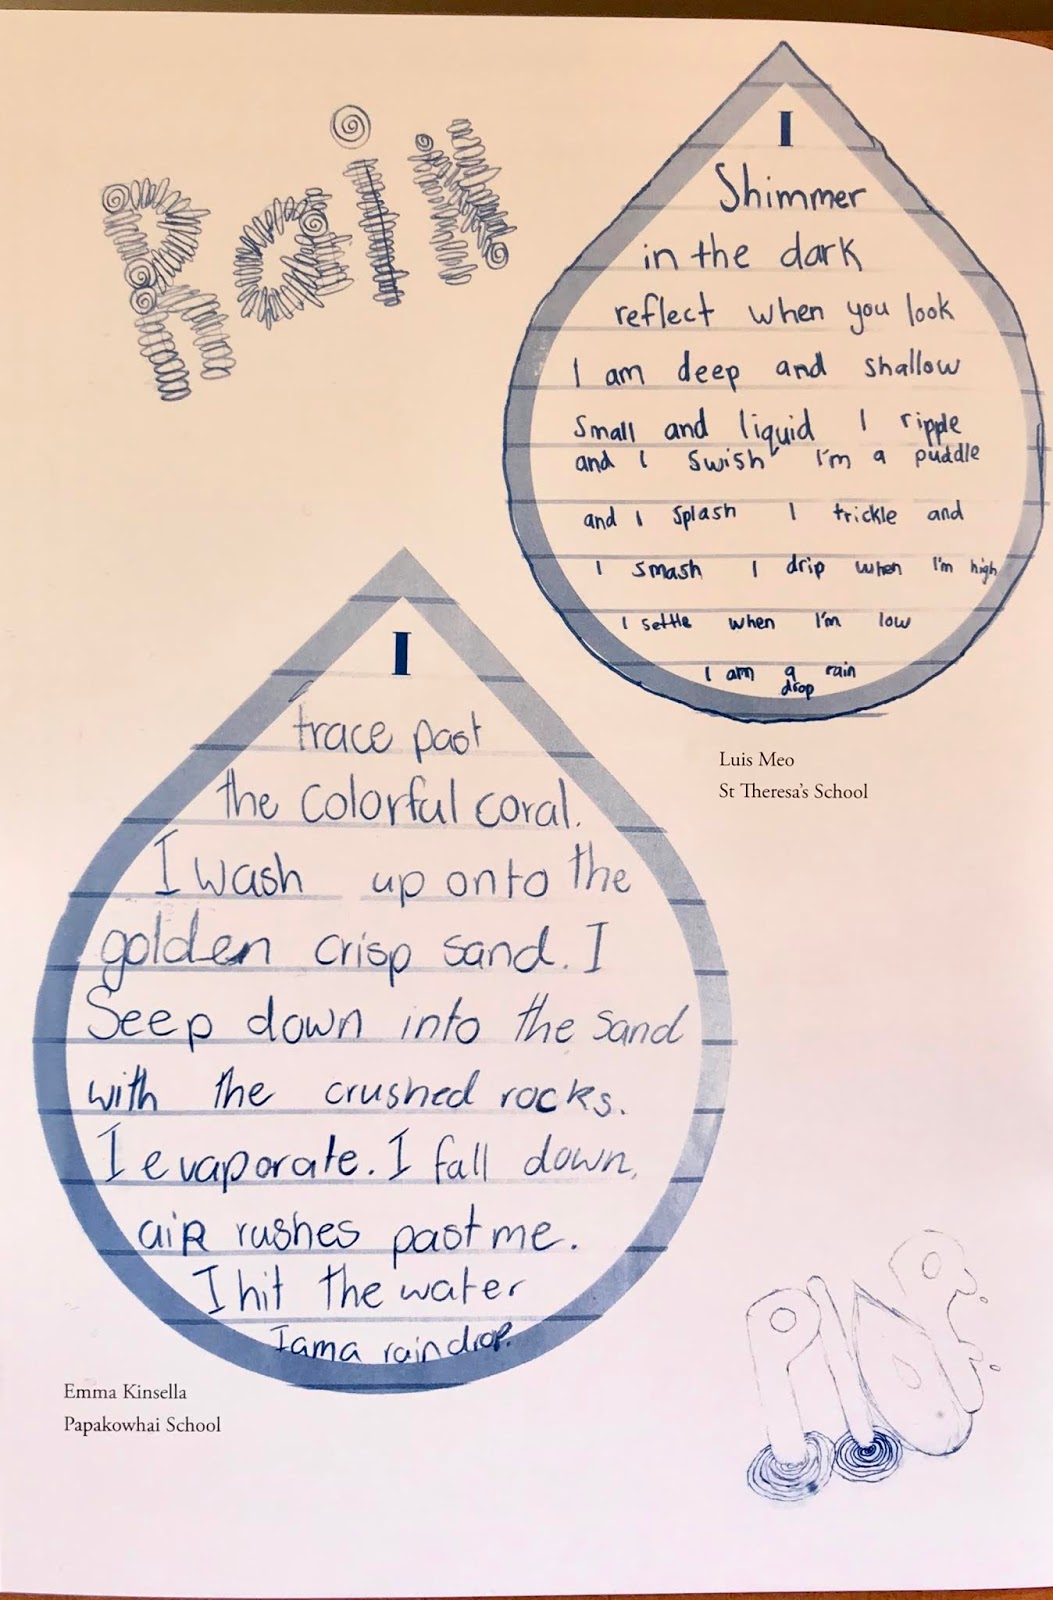 Rain
I
Shimmer
in the dark
reflect when you look
I am deep and shallow
small and liquid I ripple
and I swish I'm a puddle
and I splash I trickle and
I smash I drip when I'm high
I settle when I'm low
I am a rain
drop
Luis Meo
St Theresa's School
I
trace past
the colorful coral.
I wash up onto the
golden crisp sand. I
Seep down into the sand
with the crushed rocks.
I evaporate. I fall down,
aiR rushes past me.
I hit the water
I am a rain drop.
Emma Kinsella
Papakowhai School